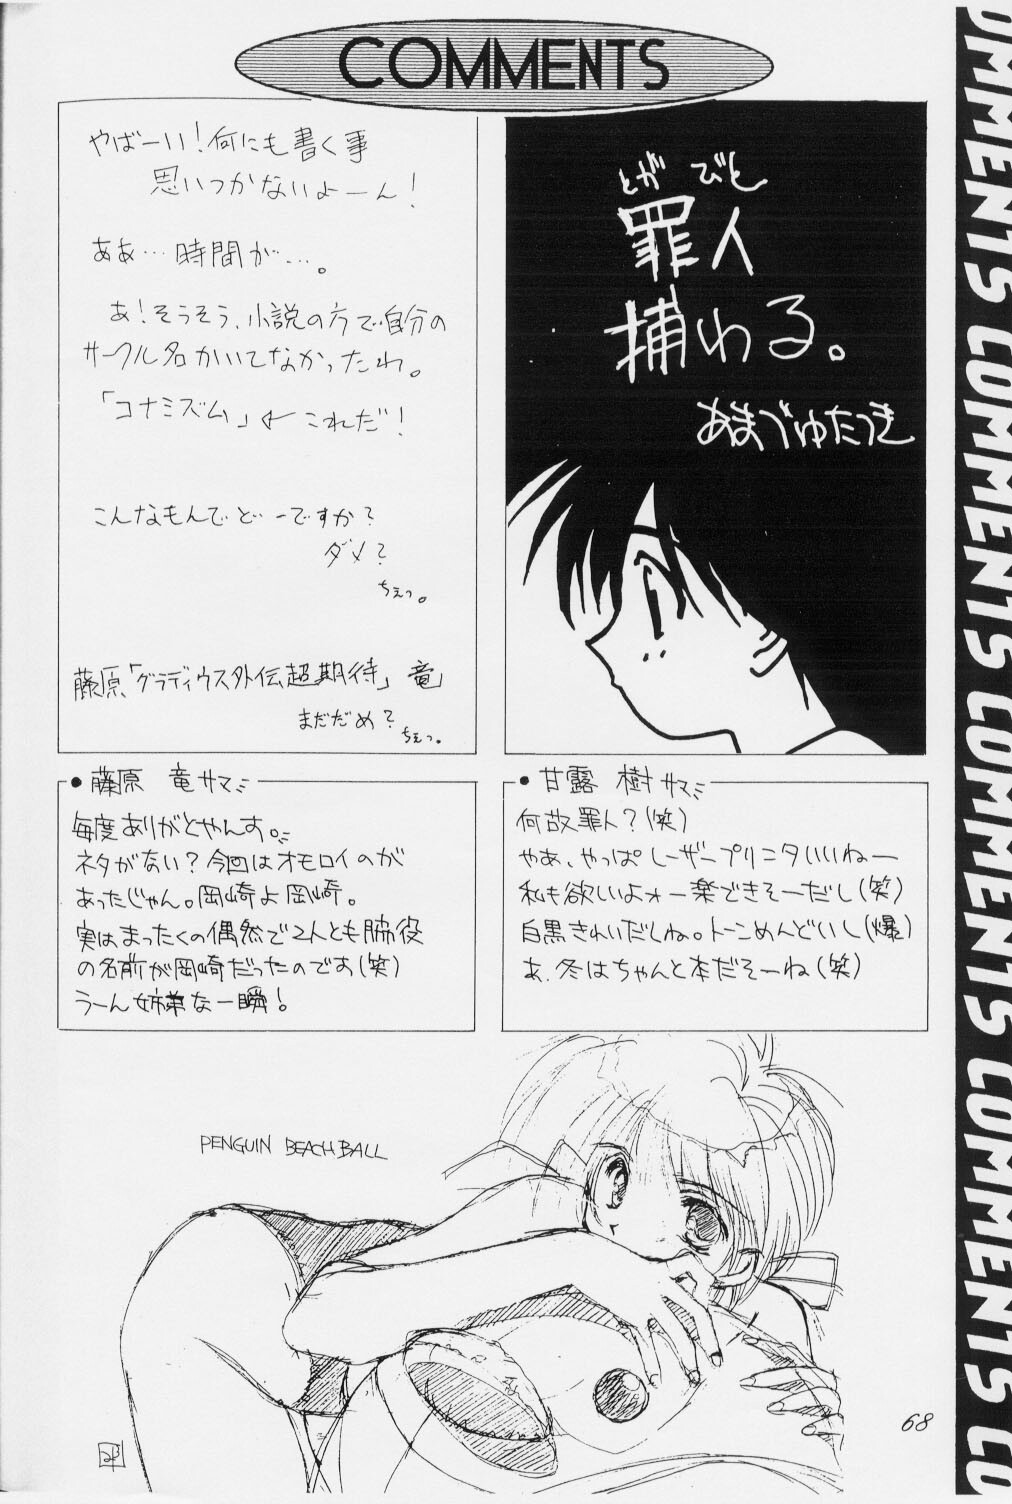 COMMENTS
やばーい!何にも書く事
思いつかないよーん!
ああ…時間が…。
あ!そうそう、小説の方で自分の
サークル名かいてなかったわ。
「コナミズム」← これだ!
こんなもんでどーですか?
ダメ?
ちぇっ。
藤原「グラディウス外伝超期待」竜
まだだめ?
ちぇっ。
とが びと
罪人
捕わる。
あまづゆたつき
●藤原 竜サマ
毎度ありがとやんす。
ネタがない?今回はオモロイのが
あったじゃん。岡崎よ岡崎。
実はまったくの偶然で2人とも脇役
の名前が岡崎だったのです(笑)
うーん姉弟な一瞬!
●甘露 樹サマ
何故罪人?(笑)
やあ、やっぱレーザープリンタいいねー
私も欲しいよォー楽できそーだし(笑)
白黒きれいだしね。トーンめんどいし(爆)
あ、冬はちゃんと本だそーね(笑)
PENGUIN BEACH BALL
68
COMMENTS COMMENTS COMMENTS COMMENTS CO